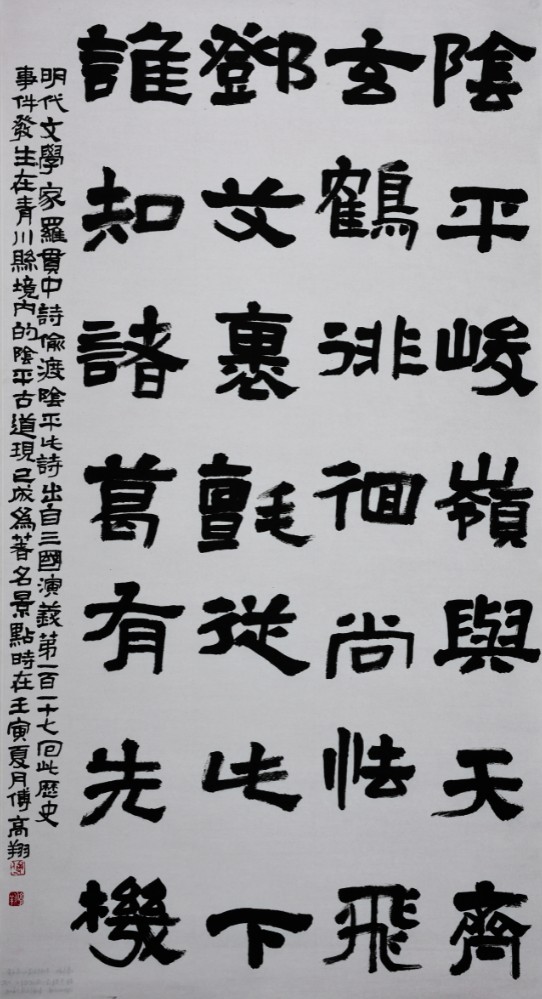 陰平峻嶺與天齊
玄鶴徘徊尚怯飛
鄧艾裹氈從此下
誰知諸葛有先機
明代文學家羅貫中詩偷渡陰平此詩出自三國演義第一百一十七回此歷史
事件發生在青川縣境内的陰平古道現已成爲著名景點時在壬寅夏月傅高翔